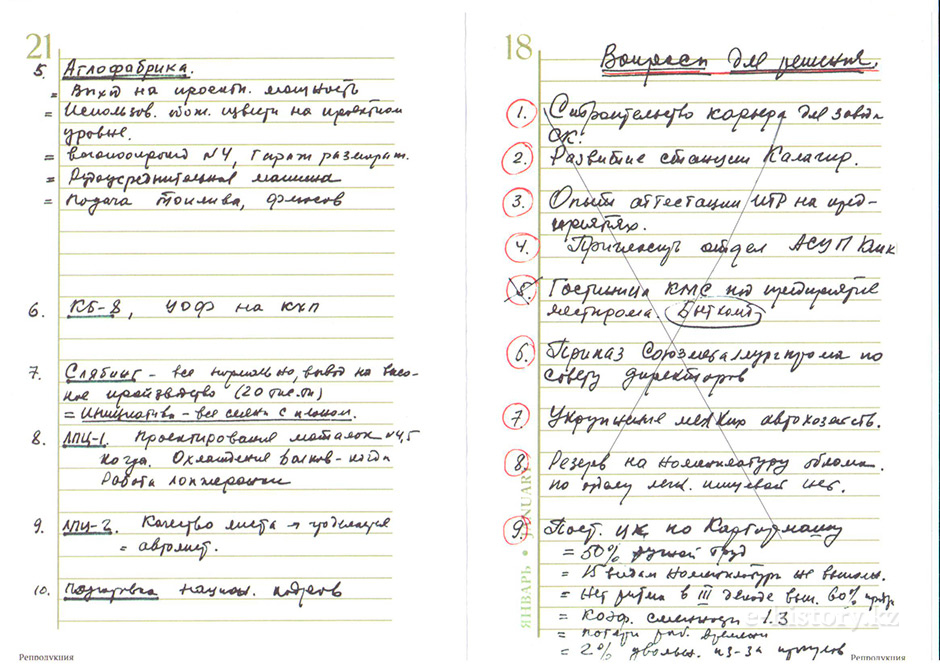 21
5. Аглофабрика.
= Выход на проектн. мощность
= Использов. на проектном
уровне.
= №4, Гараж размораж.
= Рудоусреднительная машина
= Подача топлива, флюсов
6. КБ-8, УОФ на КХП
7. Слябинг - все нормально, вывод на
производство (20 тыс.тн)
= Инициатива - все смены с планом.
8. ЛПЦ-1. Проектирование моталок №4,5
когда. Охлаждение валков - когда
Работа
9. ЛПЦ-2. Качество листа
= автолист.
10. Подготовка национ. кадров
Репродукция
18
Вопросы для решения.
1. Строительство карьера для завода
СК.
2. Развитие станции
3. Опыт аттестации ИТР на пред-
приятиях.
4. Пригласить отдел АСУП
5. Гостиница КМС под предприятие
местпрома.
6. Приказ Союзметаллургпрома по
совету директоров
7. Укрупнение мелких автохозяйств.
8. Резерв на номенклатуру обкома.
по отделу легк. пищевой нет.
9. Пост. ЦК по
= 50% ручной труд
= 15 видам номенклатуры не выполн.
= Нет ритма в III декаде вып. 60%
= Коэф. сменности 1.3
= потери раб. времени
= 2% увольн. из-за прогулов
ЯНВАРЬ • JANUARY
e-history.kz
Репродукция